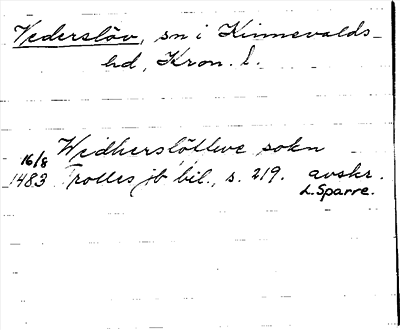 Vederslöv, sn i Kinnevalds-
hd, Kron. l.
Widherslötleve sokn
16/8
1483 Trolles jb bil., s. 219. avskr.
L. Sparre.